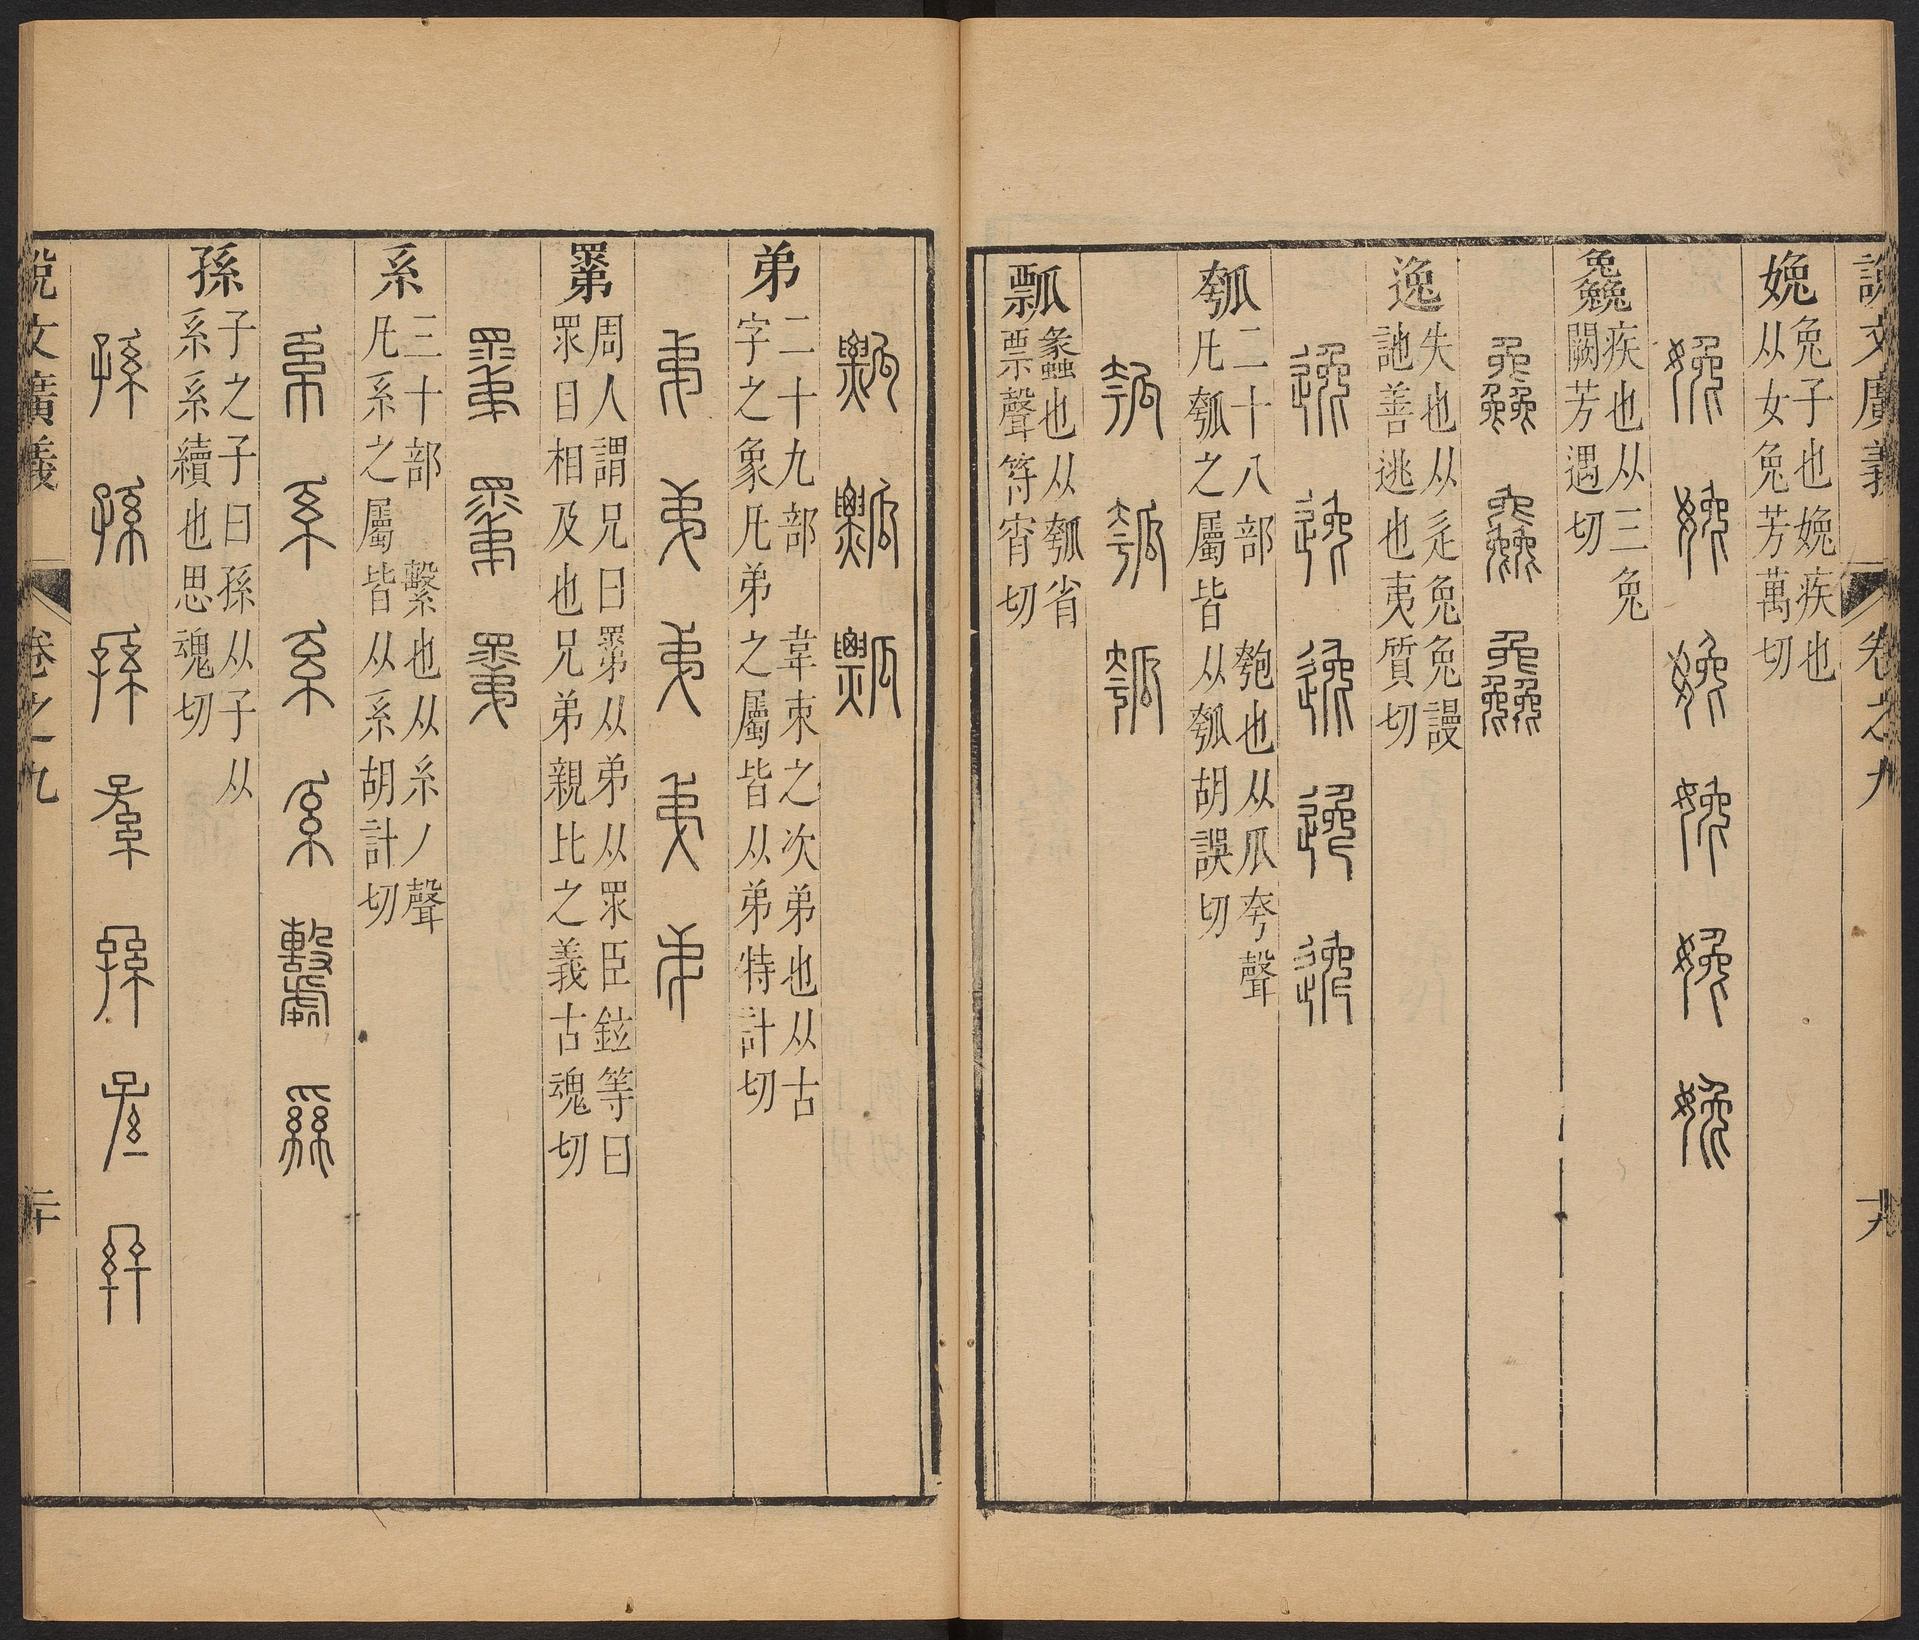 說文廣義 卷之九 十九
娩 兔子也娩疾也
从女兔芳萬切
娩 娩 娩 娩 娩 娩
鱻 疾也从三兔
闕芳遇切
逸 失也从辵兔兔謾
訑善逃也夷質切
逸 逸 逸 逸 逸
瓠 二十八部 匏也从瓜夸聲
凡瓠之屬皆从瓠胡誤切
瓠 瓠 瓠
瓢 蠡也从瓠省
票聲符宵切
瓢 瓢 瓢
弟 二十九部 韋束之次弟也从古
字之象凡弟之屬皆从弟特計切
弟 弟 弟 弟 弟
䍞 周人謂兄曰䍞从弟从眔臣鉉等曰
眔目相及也兄弟親比之義古魂切
䍞 䍞 䍞
系 三十部 繫也从糸丿聲
凡系之屬皆从系胡計切
系 系 系 系
孫 子之子曰孫从子从
系系續也思魂切
孫 孫 孫 孫 孫 孫 孫
說文廣義 卷之九 二十